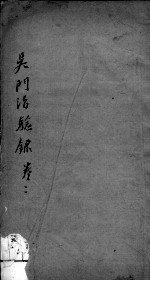 吳門治驗錄卷二